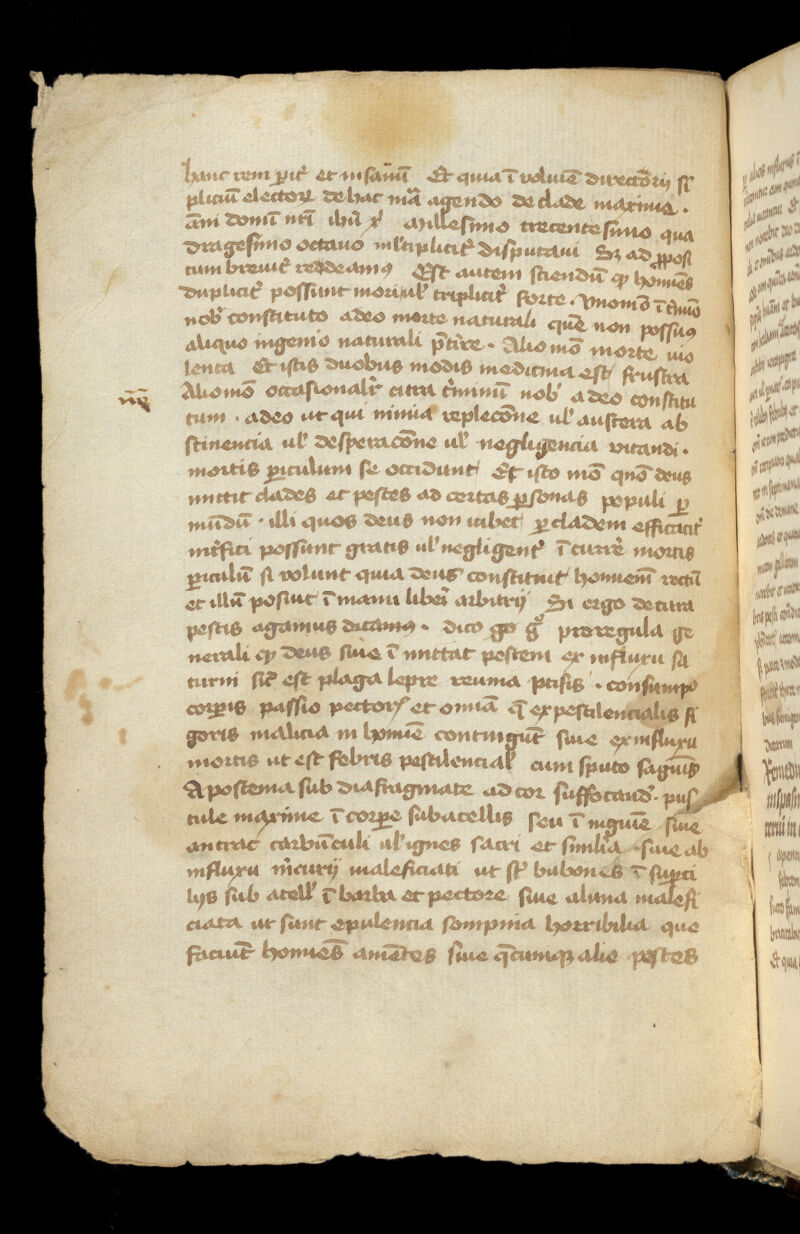 hanc rem p̱it̛ et insanū Et quia ī volumē directorij si
pliciū electoꝝ de hac mā agendo de clade maxima ·
ani domī nrī ihū x̛ Millesimo trecentesimo qua
dragesimo octauo ml̛tiplicit̛ disputaui Sꝫ ad ꝓposi
tum breuit̛ redeamꝰ Est autem sciendū ꝙ hoīes
duplicit̛ possunt mori ul̛ triplicit̛ forte · Vnomō ī t̛mīo
nob̛ constituto a deo morte naturali quē non possūꝰ
aliquo ingenio naturali p̄t̛ire · Alio mō morte uio
lenta Et istis duobus modis medicina est frustra
Alio mō occasionalit̛ citra t̛minū nob̛ a deo constitu
tum · adeo ut qui nimia replecōne ul̛ austera ab
stinencia ul̛ desperacōne ul̛ negligencia vitandi ·
mortis ꝑiculum se occidunt Et isto mō qn̄ deus
mittit clades et pestes ad certas ꝑsonas populi ꝑ
mūdū · illi quos deus non iubet ꝑ cladem efficacit̛
int̛fici possunt gratis ul̛ negligent̛ ī curre̛ mortis
ꝑiculū si volunt quia deus constituit hoīem rectū
et illū posuit ī manu liberi arbitrij Si ergo de cura
pestis agamus dicamꝰ · dico pro regula ge
nerali ꝙ deus siue ī mittat pestem ex influxu sa
turni sic̛ est plaga lepre reuma ptisis · consumpo
corꝑis passio pectorꝭ et omīa q̄ ex pestilencialis fi
goris malicia in hoīe contingūt siue ex influxu
mortis ut est febris pestilencial̛ cum sputo saguīs
Apostema sub diafragmate ad cor suffocand̛ · pus
tule maxime ī corꝑe sub acellis seu ī inguīe siue
antrac carbūculi ul̛ ignes sacri et similia · siue ab
influxu m̛curij maleficiati ut st̛ bubones ī suꝑci
lijs sub acell̛ ī barba et pectore siue a luna malefi
ciata ut sunt epulencia sompnia horribilia que
faciūt hoīes amētes siue q̄cumqꝫ alie pestes